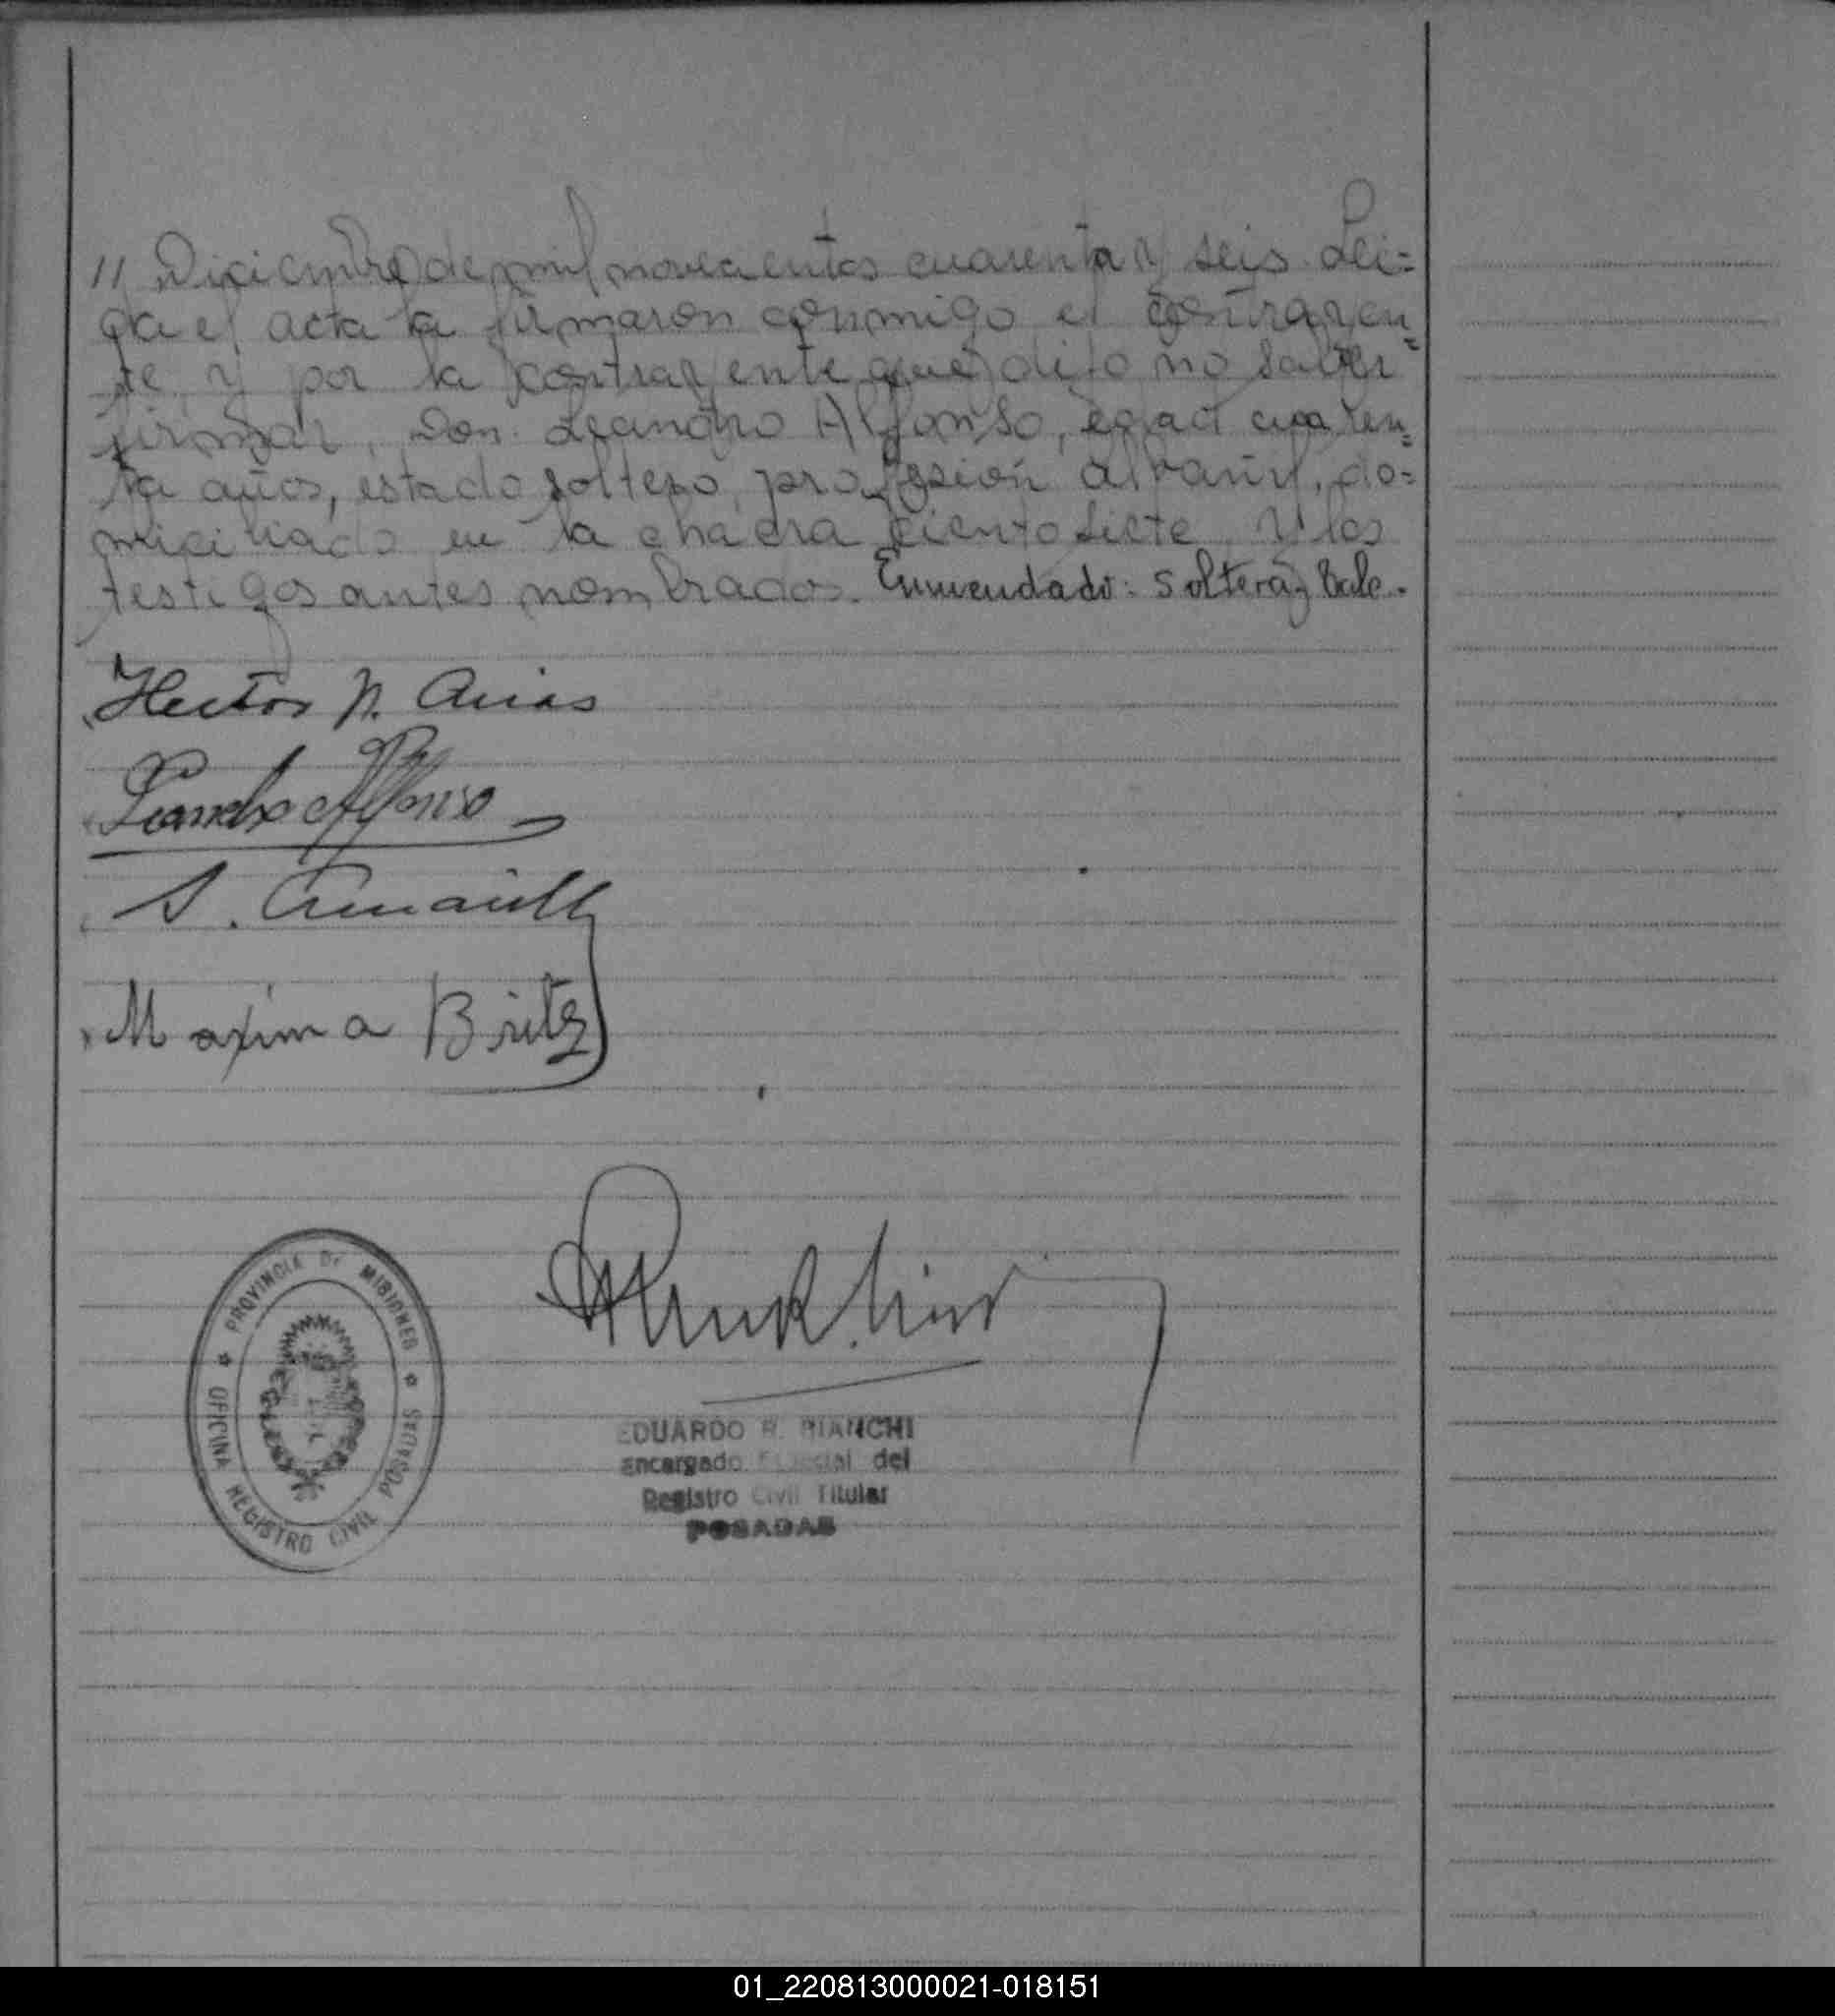 // Diciembre de mil novecientos cuarenta y seis. Lei=
da el acta la firmaron conmigo el contrayen=
te y por la contrayente que dijo no saber
firmar, Don Leandro Alfonso, edad cuaren=
ta años, estado soltero, profesión albañil, do=
miciliado en la chacra ciento siete y los
testigos antes nombrados. Enmendado: soltera, Vale.
Hector N. Arias
Leandro Alfonso
Maxima Britez
PROVINCIA DE MISIONES
OFICINA REGISTRO CIVIL POSADAS
EDUARDO R. BIANCHI
Encargado del
Registro Civil Titular
POSADAS
01_220813000021-018151